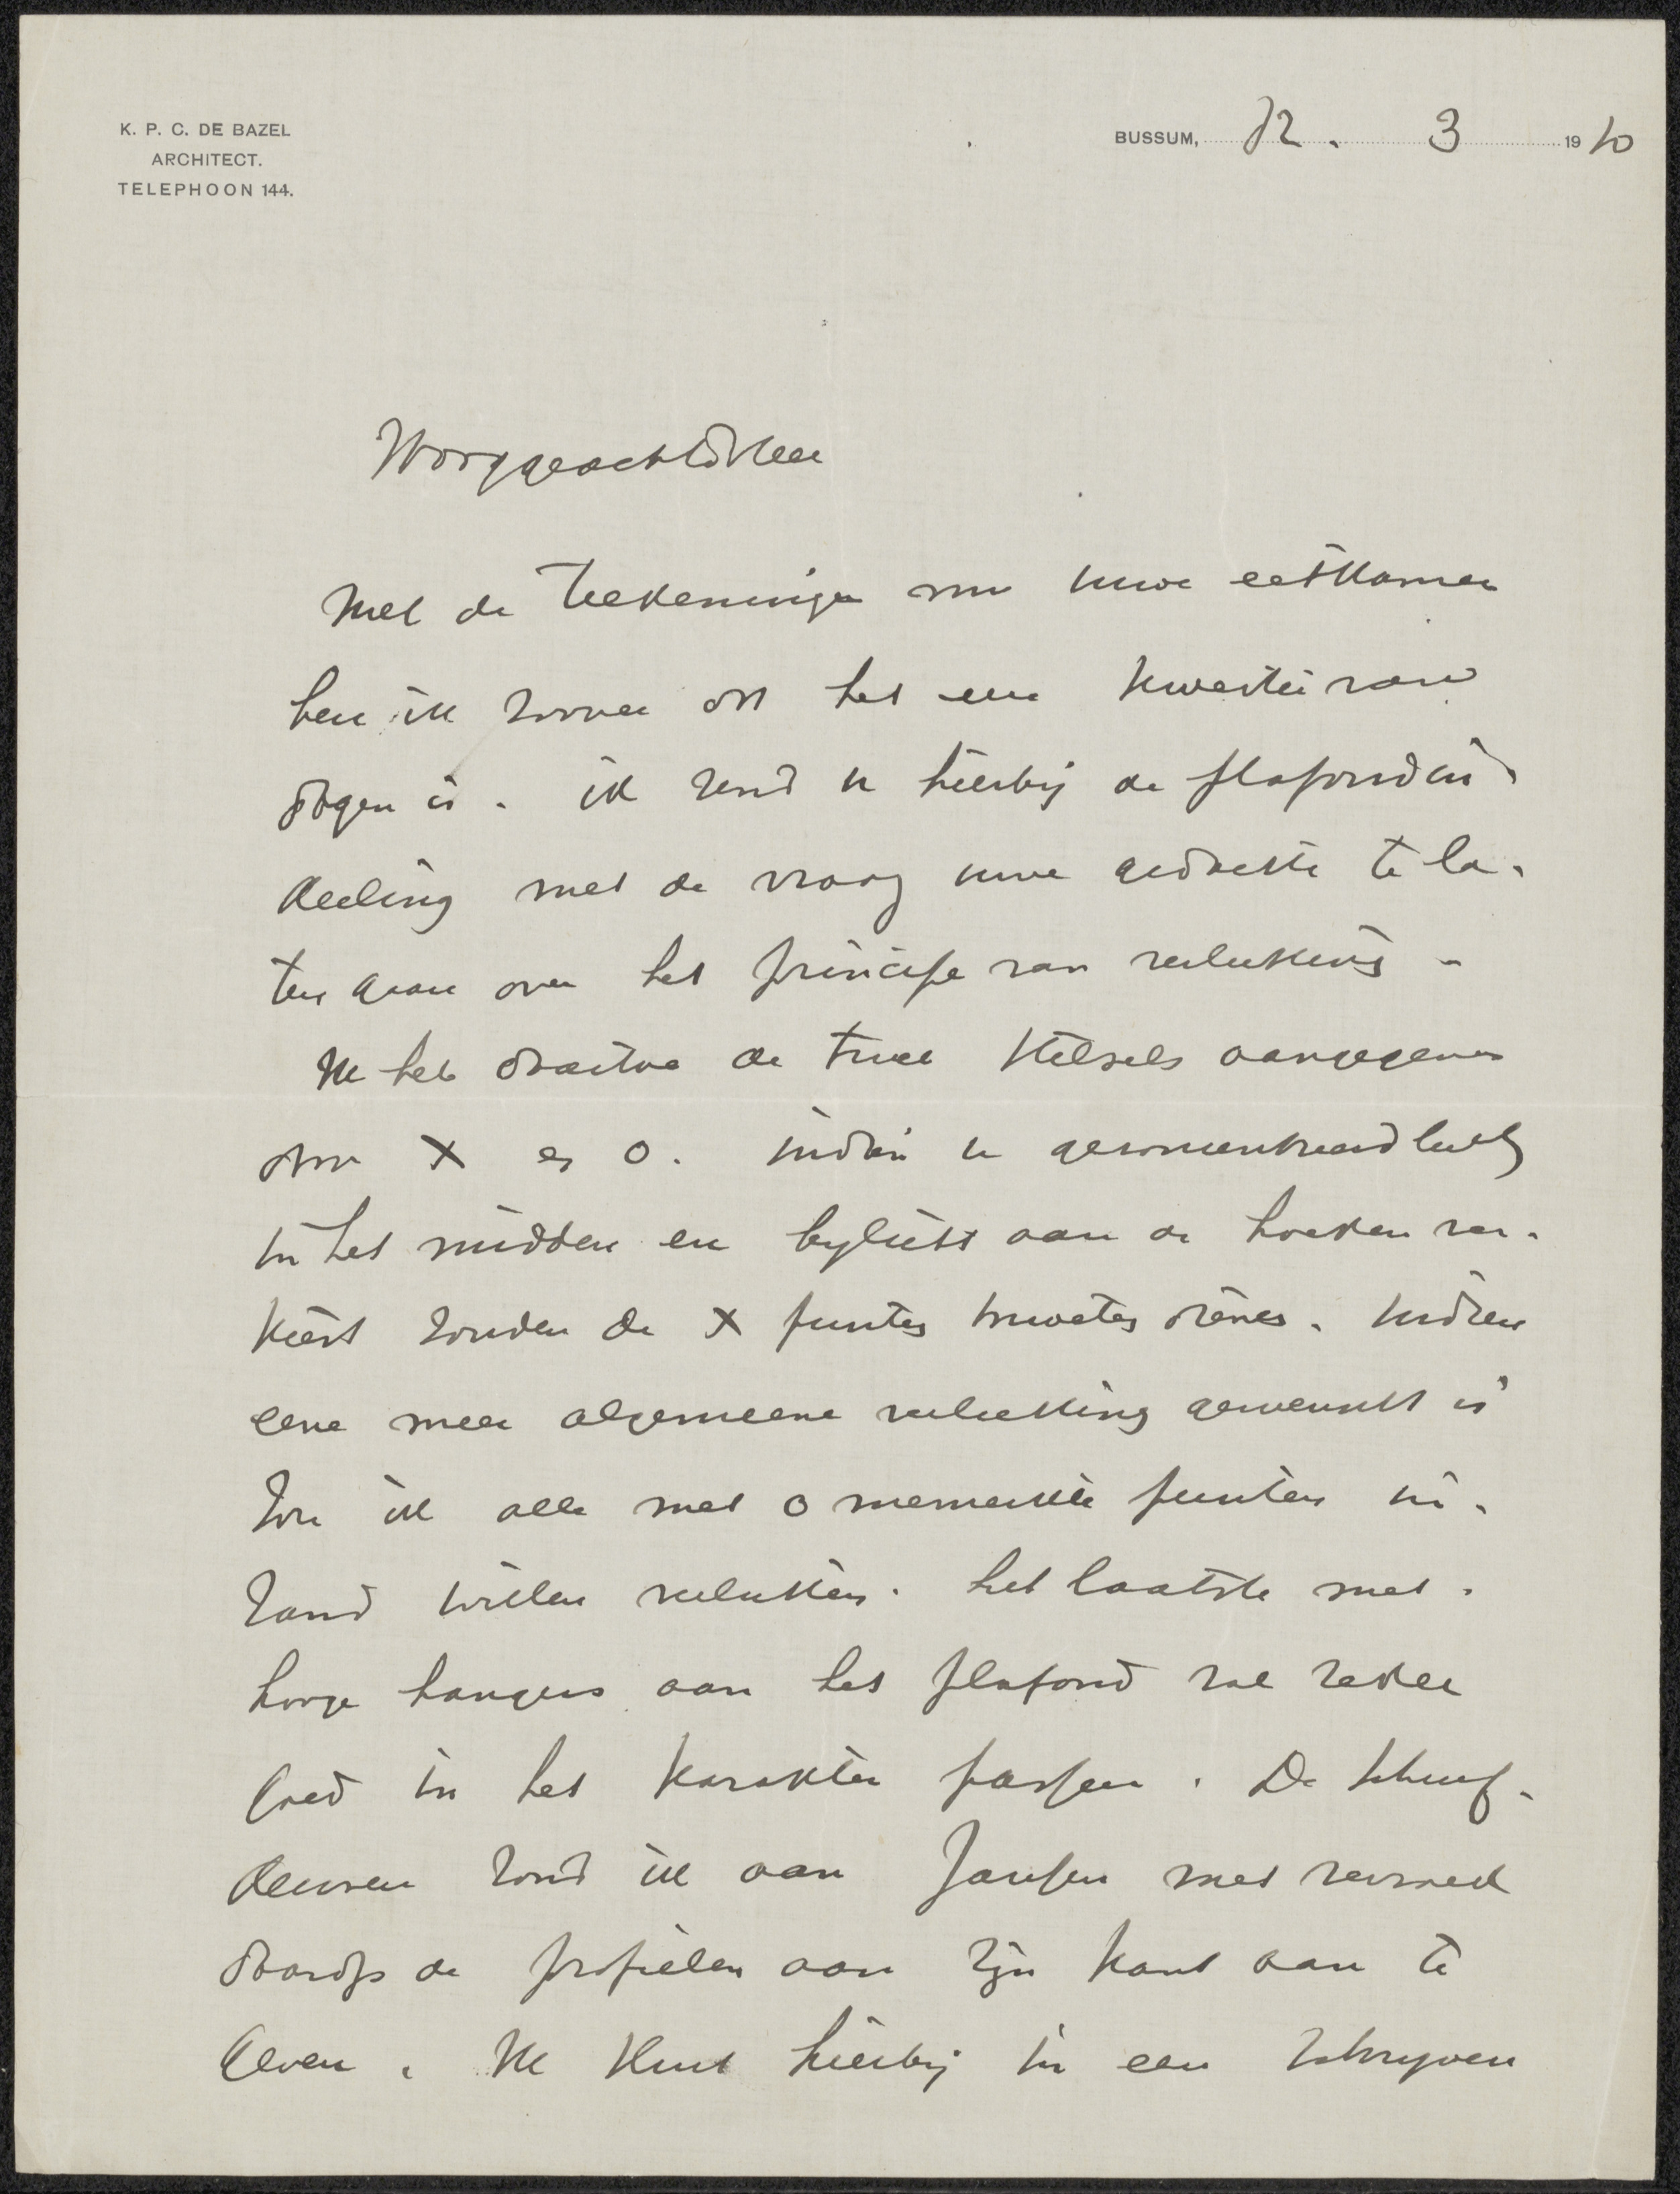 K. P. C. DE BAZEL
ARCHITECT.
TELEPHOON 144.
BUSSUM, 12. 3 1910
Hooggeachte Heer
Met de teekeningen van uwe eetkamer
ben ik zoover dat het een kwestie van
dagen is. ik zend u hierbij de plafondin-
deeling met de vraag uwe gedachte te la-
ten gaan over het principe van verlichting -
Ik heb daartoe de twee stelsels aangegeven
door X en o. indien u geconcentreerd licht
in het midden en bylicht aan de hoeken ver-
kiest zouden de X punten moeten dienen. Indien
eene meer algemeene verlichting gewenscht is
zou ik alle met o gemerkte punten in-
stand willen verlichten. het laatste met
hooge hangers aan het plafond zal zeker
goed in het karakter passen. De schuif-
deuren zond ik aan Jansen met verzoek
daarop de profielen aan zijn kant aan te
geven. Ik sluit hierbij in een schrijven